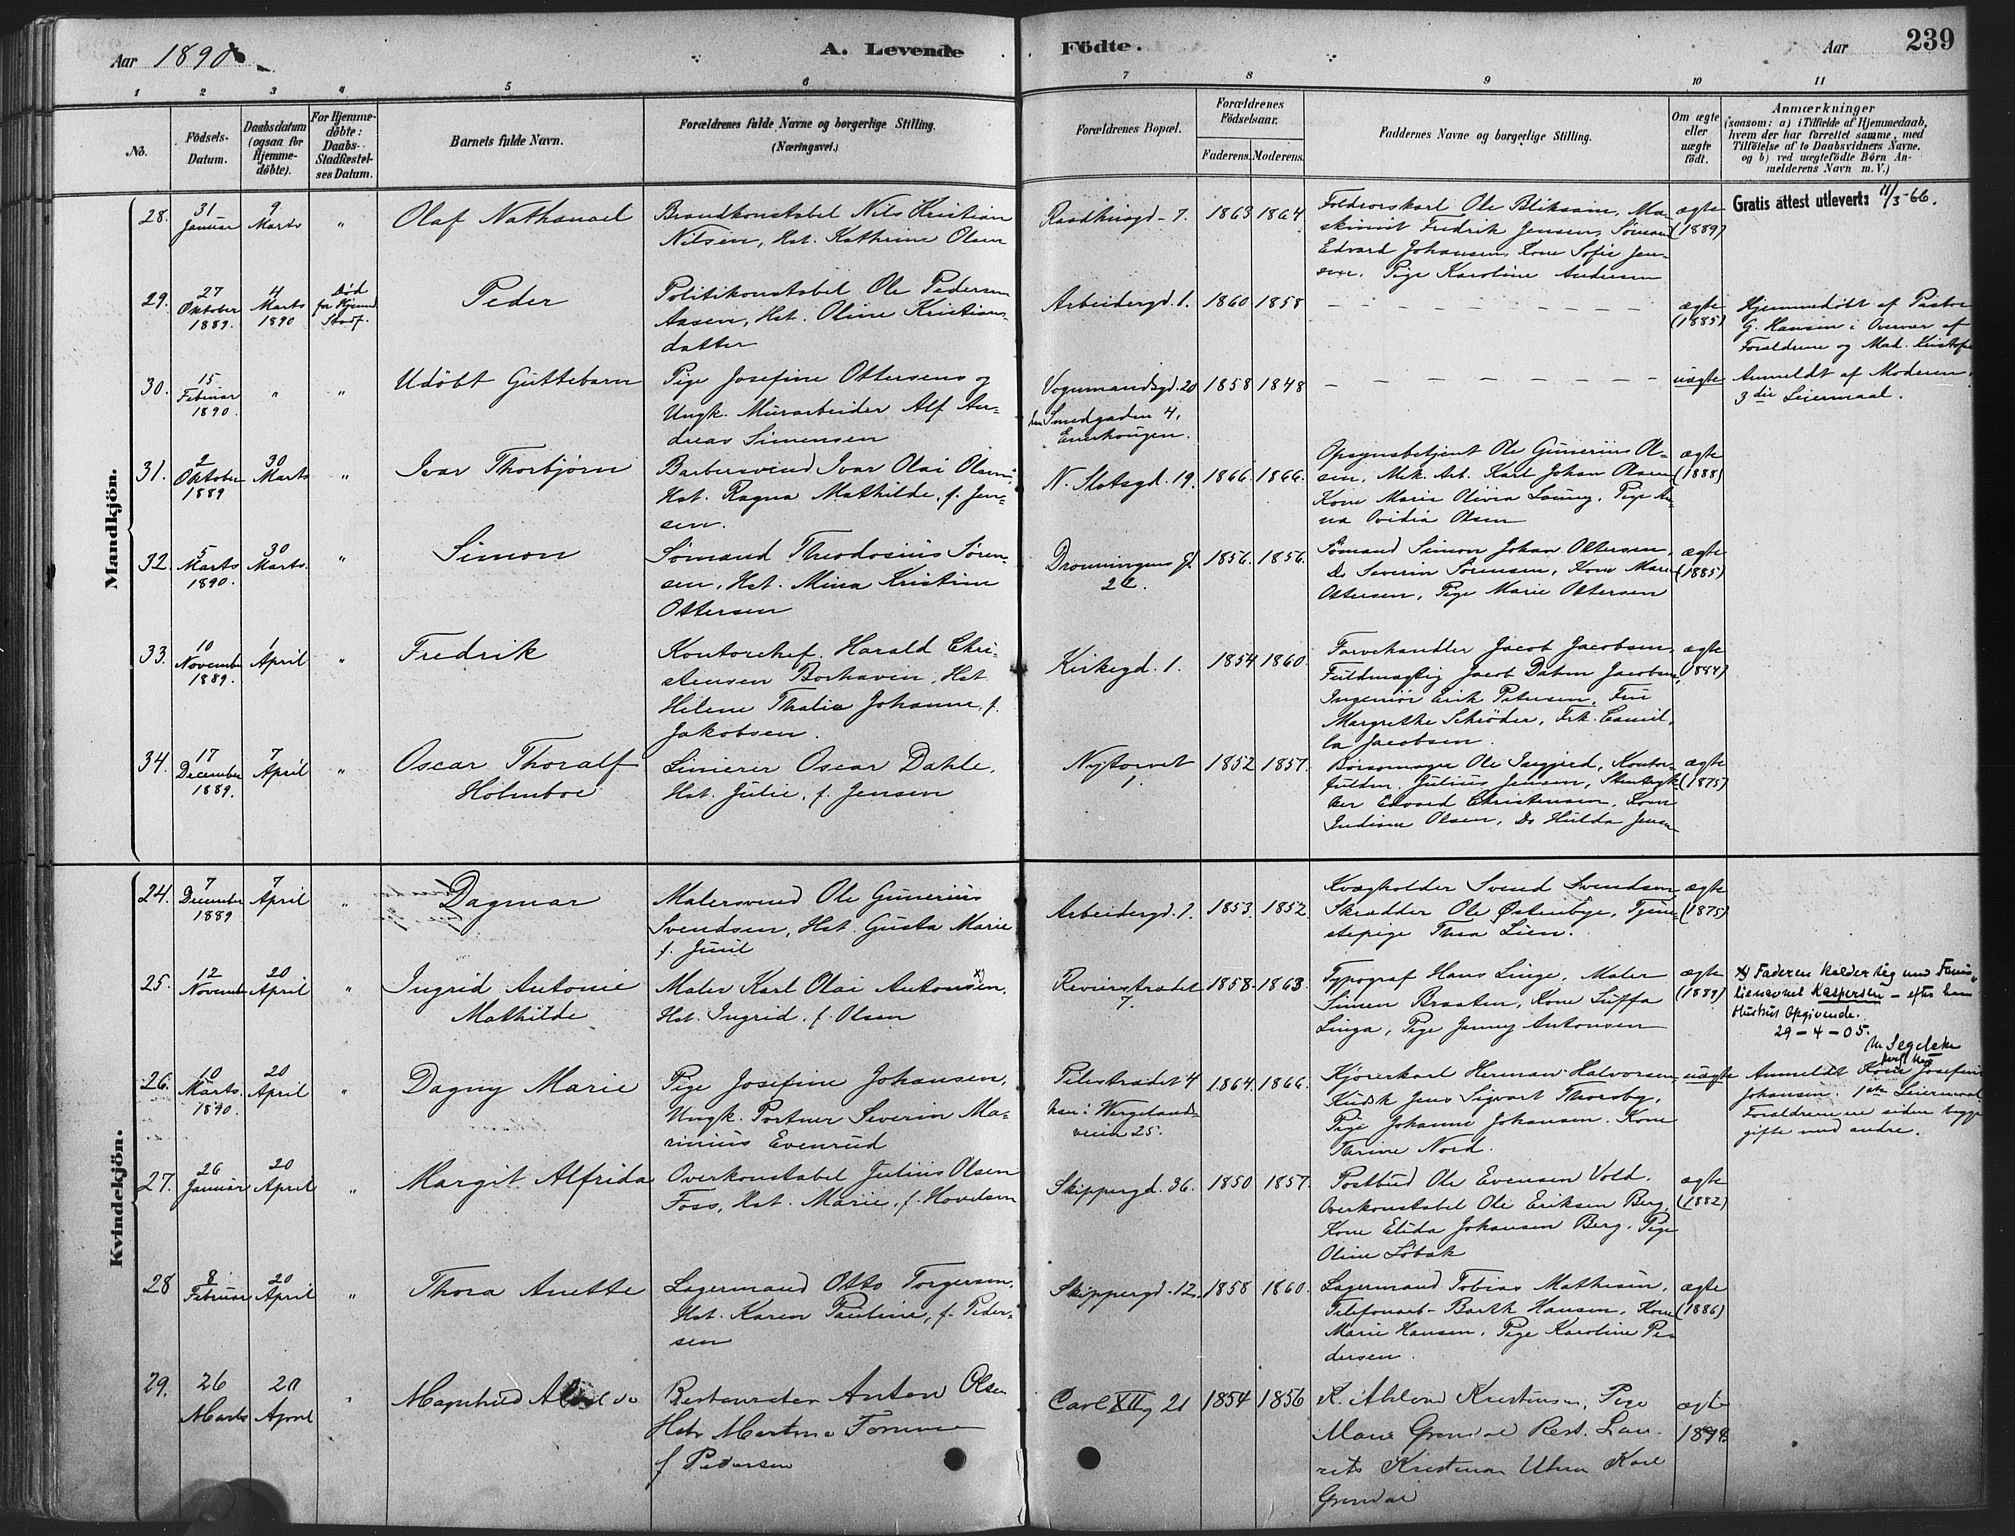 Aar 1890.
A. Levende
Födte.
Aar
239
1 2 3 4 5 6 7 8 9 10 11
No.
Födsels-Datum.
Daabsdatum (ogsaa for Hjemme-döbte).
For Hjemme-döbte: Daabs-Stadfæstel-ses Datum.
Barnets fulde Navn.
Forældrenes fulde Navne og borgerlige Stilling.
(Næringsvei.)
Forældrenes Bopæl.
Forældrenes Födselsaar.
Faderens. Moderens.
Faddernes Navne og borgerlige Stilling.
Om ægte eller uægte födt.
Anmærkninger
(saasom: a) i Tilfælde af Hjemmedaab,
hvem der har forrettet samme, med
Tilföielse af to Daabsvidners Navne.
og b) ved uægtefödte Börn An-
melderens Navn m. V.)
Mandkjön.
28. 31 Januar 9 Marts " Olaf Nathanael
Brandkonstabel Nils Kristian
Nilsen, Hst. Kathrine Olsen
Raadhusgd. 7. 1863 1864
Ole Bliksain, Ma-
skinist Fredrik Jensen, Sømand
Edvard Johansen, Kone Sofie Jen-
sen, Pige Karoline Andersen
ægte (1889)
Gratis attest utlevert: 11/3-66.
29. 27 Oktober 1889. 4 Marts 1890 Død før Hjemd. Stadf. Peder
Politikonstabel Ole Pedersen
Aasen, Hst. Oline Kristians-
datter
Arbeidergd. 1. 1860 1858
ægte (1885)
Hjemmedøbt af Pastor
G. Hansen i Overvær af
Forældrene og Mad.
30. 15 Februar 1890. " " Udöbt Guttebarn
Pige Josefine Ottersens og
Ungk. Murarbeider Alf An-
dreas Simensen
Vognmandsgd. 20
han Smedgaden 4,
Enerhougen.
1858 1848
uægte
Anmeldt af Moderen.
3die Leiermaal.
31. 2 Oktober 1889 30 Marts " Ivar Thorbjørn
Barbersvend Ivar Olai Olsen,
Hst. Ragna Mathilde, f. Jen-
sen.
N. Slotsgd. 19. 1866 1866.
Opsynsbetjent Ole Gunerius Ol-
sen, Mek. Arb. Karl Johan Olsen
Kone Marie Olivia Pige An-
na Ovidia Olsen
ægte (1888)
32. 5 Marts 1890. 30 Marts. " Simon
Sømand Theodosius Søren-
sen, Hst. Mina Kristine
Ottersen
Dronningens gd. 26. 1856. 1856.
Sømand Simon Johan Ottersen,
Do Severin Sørensen, Kone Maren
Ottersen, Pige Marie Ottersen
ægte (1885)
33. 10 November 1889. 1 April " Fredrik
Kontorchef. Harald Chri-
stensen Borhaven, Hst.
Helene Thalie Johanne, f.
Jakobsen.
Kirkegd. 1. 1854 1860.
Farvehandler Jacob Jacobsen,
Fuldmægtig Jacob Dahm Jacobsen,
Ingeniør Erik Petersen, Fru
Margrethe Schrøder, Frk. Camil-
la Jacobsen.
ægte (1884)
34. 17 December 1889. 7 April " Oscar Thoralf
Holmboe
Linierer Oscar Dahle,
Hst. Julie, f. Jensen
Nytorvet 1. 1852 1857.
Børsemager Ole Kontor-
fuldm. Julius Jensen,
Edvard Christensen, Kone
Indiane Olsen, Do Hulda Jensen
ægte (1875)
Kvindekjön.
24. 7 December 1889 7 April " Dagmar
Malersvend Ole Gunerius
Svendsen, Hst. Gusta Marie
f. Juul
Arbeidergd. 1. 1853. 1852.
Kvægholder Svend Svendsen
Skrædder Ole Østenbye, Tjene-
stepige Thea Lien.
ægte (1875)
25. 12 Novemb. 20 April " Ingrid Antonie
Mathilde
Maler Karl Olai Antonsen, x)
Hst. Ingrid, f. Olsen
Revierstrædet 7. 1858. 1863.
Typograf Hans Linge, Maler
Simen Braaten, Kone
Linga, Pige Jenny Antonsen
ægte (1889)
x) Faderen kalder sig med Fami-
lienavnet Kaspersen - efter hans
Hustrus Opgivende.
29-4-05.
26. 10 Marts. 1890. 20 April " Dagny Marie
Pige Josefine Johansen,
Ungk. Portner Severin Ma-
rinius Evenrud
Pilestrædet 4
han: Wergelands-
veien 25.
1864. 1866.
Kjørerkarl Herman Halvorsen
Kudsk Jens Sigvart Thoresby,
Pige Johanne Johansen. Kone
Karine Nord.
uægte
Anmeldt Kone Josefine
Johansen. 1ste Leiermaal.
Forældrene ere siden begge
gifte med andre.
27. 26 Januar 20 April " Margit Alfrida
Overkonstabel Julius Olsen
Foss, Hst. Marie, f. Hovelsen
Skippergd. 36. 1850 1857.
Postbud Ole Evensen Vold.
Overkonstabel Ole Eriksen Berg,
Kone Elida Johansen Berg, Pige
Oline Løbak
ægte (1882)
28 8 Februar 20 April " Thora Anette
Lagermand Otto Torgersen,
Hst. Karen Pauline, f. Peder-
sen
Skippergd. 12. 1858 1860.
Lagermand Tobias Mathisen,
Telefonarb. Barth Hansen, Kone
Marie Hansen, Pige Karoline Pe-
dersen
ægte (1886)
29. 26 Marts 20 April " Magnhild
Restauratør Anton Olsen
Hst. Martine
f Pedersen
Carl XII g 21 1854 1856
Kristensen, Pige
Marie Grendal Rest. Lau-
rits Kristensen Karl
Grendal
ægte